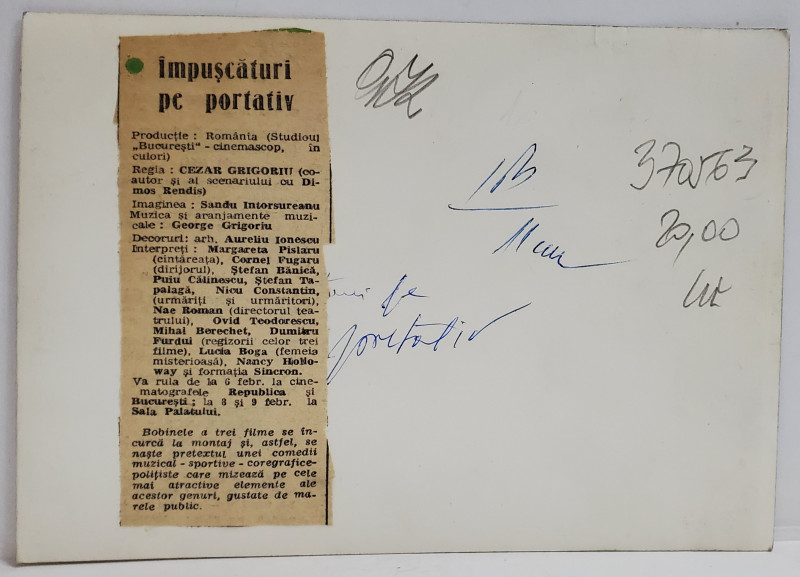 Împușcături
pe portativ
Producție : România (Studioul
„București“ - cinemascop, în
culori)
Regia : CEZAR GRIGORIU (co-
autor și al scenariului cu Di-
mos Rendis)
Imaginea : Sandu Intorsureanu
Muzica și aranjamente muzi-
cale : George Grigoriu
Decoruri: arh. Aureliu Ionescu
Interpreți : Margareta Pîslaru
(cîntăreața), Cornel Fugaru
(dirijorul), Ștefan Bănică,
Puiu Călinescu, Ștefan Ta-
palagă, Nicu Constantin,
(urmăriți și urmăritori),
Nae Roman (directorul tea-
trului), Ovid Teodorescu,
Mihai Berechet, Dumitru
Furdui (regizorii celor trei
filme), Lucia Boga (femeia
misterioasă), Nancy Hollo-
way și formația Sincron.
Va rula de la 6 febr. la cine-
matografele Republica și
București ; la 8 și 9 febr. la
Sala Palatului.
Bobinele a trei filme se în-
curcă la montaj și, astfel, se
naște pretextul unei comedii
muzical - sportive - coregrafice-
polițiste care mizează pe cele
mai atractive elemente ale
acestor genuri, gustate de ma-
rele public.
370563
20,00
pe
portativ